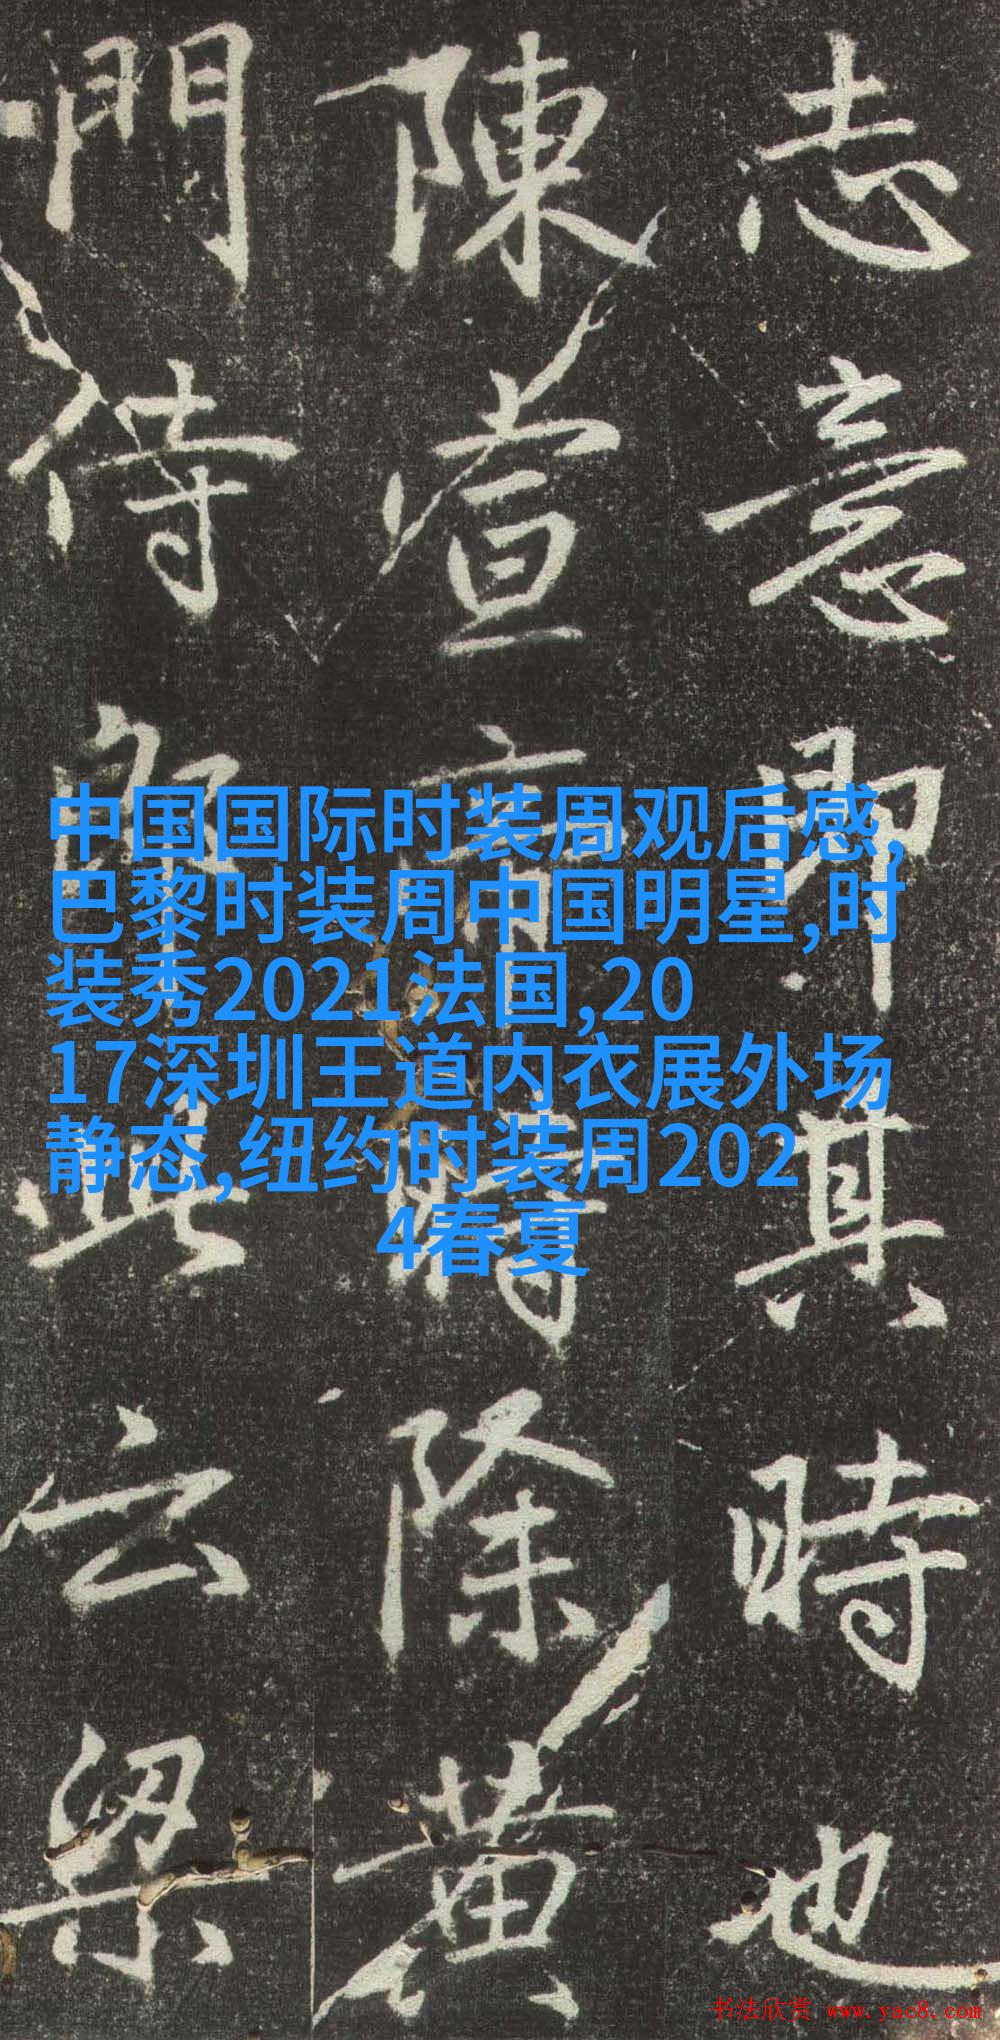 志意即其時也
陳宣帝時除黄
門侍郎此云梁
中国国际时装周观后感,
巴黎时装周中国明星,时
装秀2021法国,20
17深圳王道内衣展外场
静态,纽约时装周202
4春夏
书法欣赏 www.yac8.com